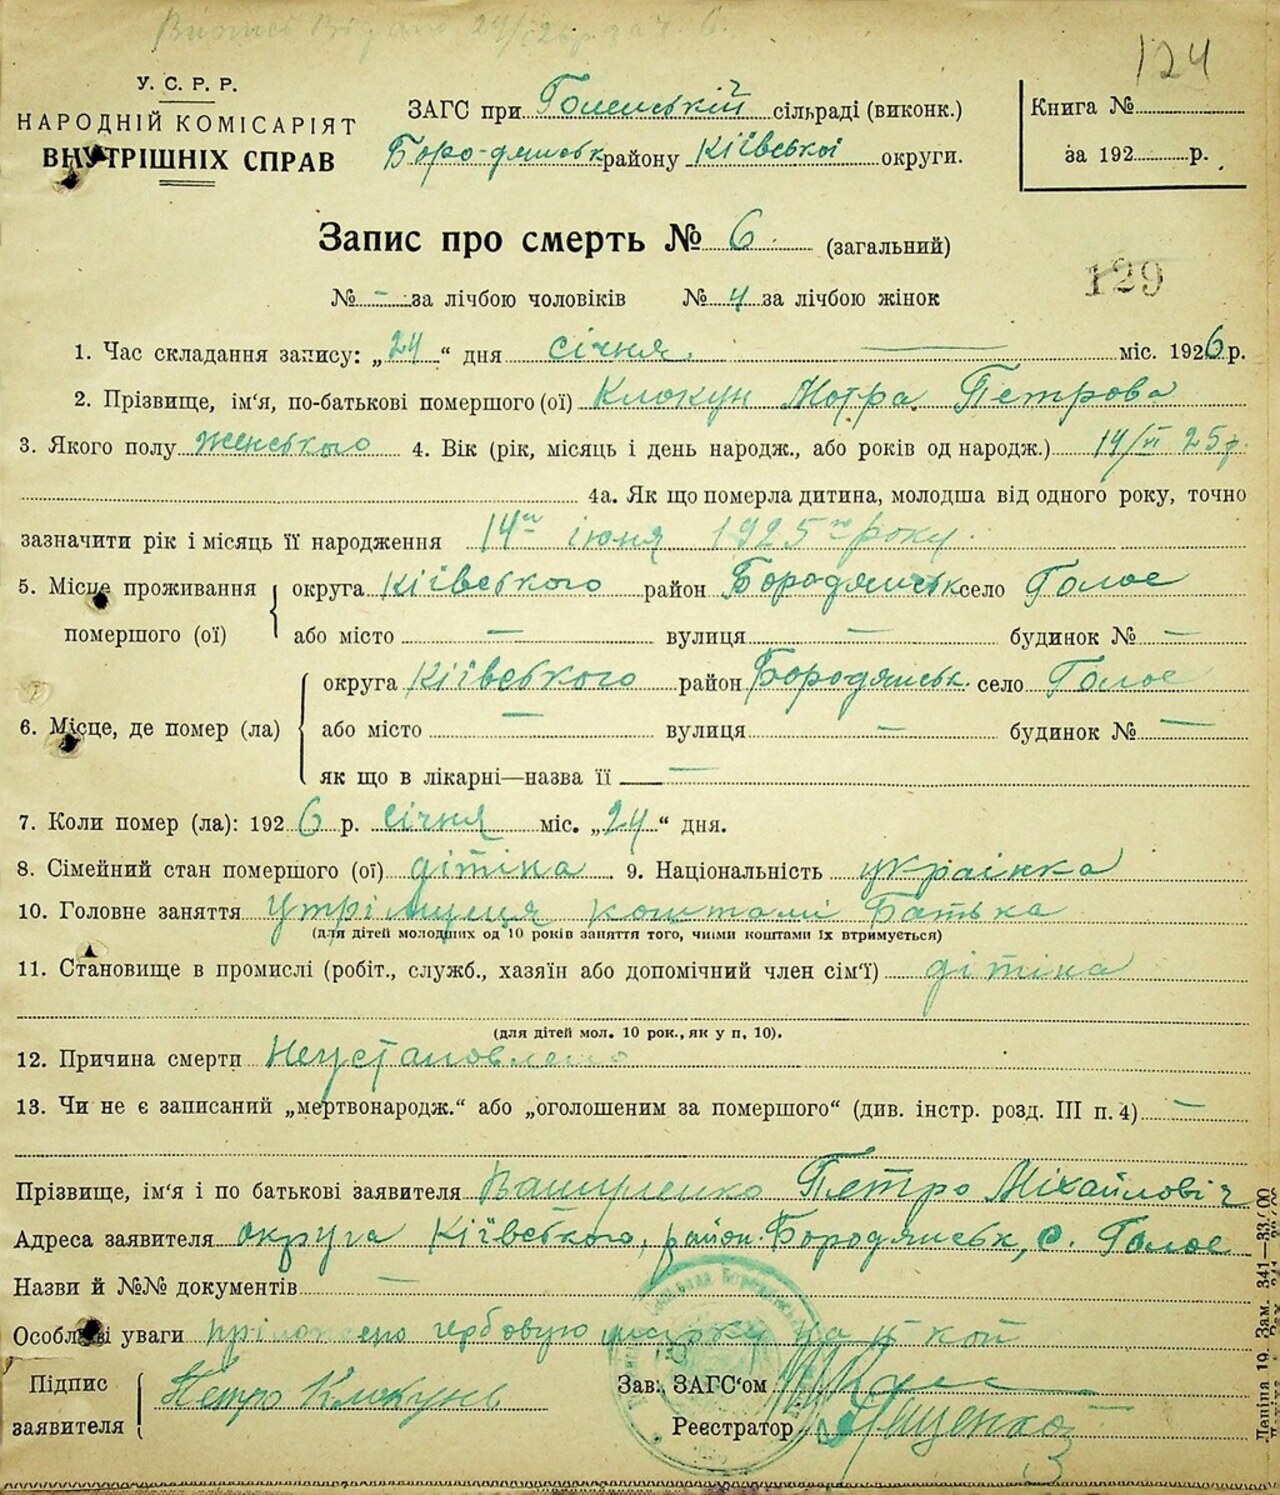 Виписъ Видано 24/I 26 р. за № 6.
124
У. С. Р. Р.
НАРОДНІЙ КОМІСАРІЯТ
ВНУТРІШНІХ СПРАВ
ЗАГС при Голенській сільраді (виконк.)
Боро-дянськ району Київської округи.
Книга №
за 192 р.
Запис про смерть № 6. (загальний)
129
№ - за лічбою чоловіків № 4 за лічбою жінок
1. Час складання запису: „24“ дня січня. — міс. 1926 р.
2. Прізвище, ім'я, по-батькові помершого (ої) Клокун Мотра Петрова
3. Якого полу женського 4. Вік (рік, місяць і день народж., або років од народж.) 14/VI 25 р.
4а. Як що померла дитина, молодша від одного року, точно
зазначити рік і місяць її народження 14го іюня 1925го року.
5. Місце проживання помершого (ої) округа Київського район Бородянськ село Голое
або місто — вулиця — будинок № —
6. Місце, де помер (ла) округа Київського район Бородянськ. село Голое
або місто — вулиця — будинок № —
як що в лікарні—назва її —
7. Коли помер (ла): 1926 р. січня міс. „24“ дня.
8. Сімейний стан помершого (ої) дітіна. 9. Національність украінка
10. Головне заняття Утрімуця коштамі Батька
(для дітей молодших од 10 років заняття того, чиїми коштами їх втримується)
11. Становище в промислі (робіт., служб., хазяїн або допомічний член сім'ї) дітіна
(для дітей мол. 10 рок., як у п. 10).
12. Причина смерти Неустановлено
13. Чи не є записаний „мертвонародж.“ або „оголошеним за помершого“ (див. інстр. розд. III п. 4) —
Прізвище, ім'я і по батькові заявителя Петро Міхайловіч
Адреса заявителя округа Київського, район. Бородянськ, с. Голое
Назви й №№ документів —
Особливі уваги пріложено гербовую марку на коп
Підпис заявителя Петро Клокунь
Зав. ЗАГС'ом
Реєстратор Яценко